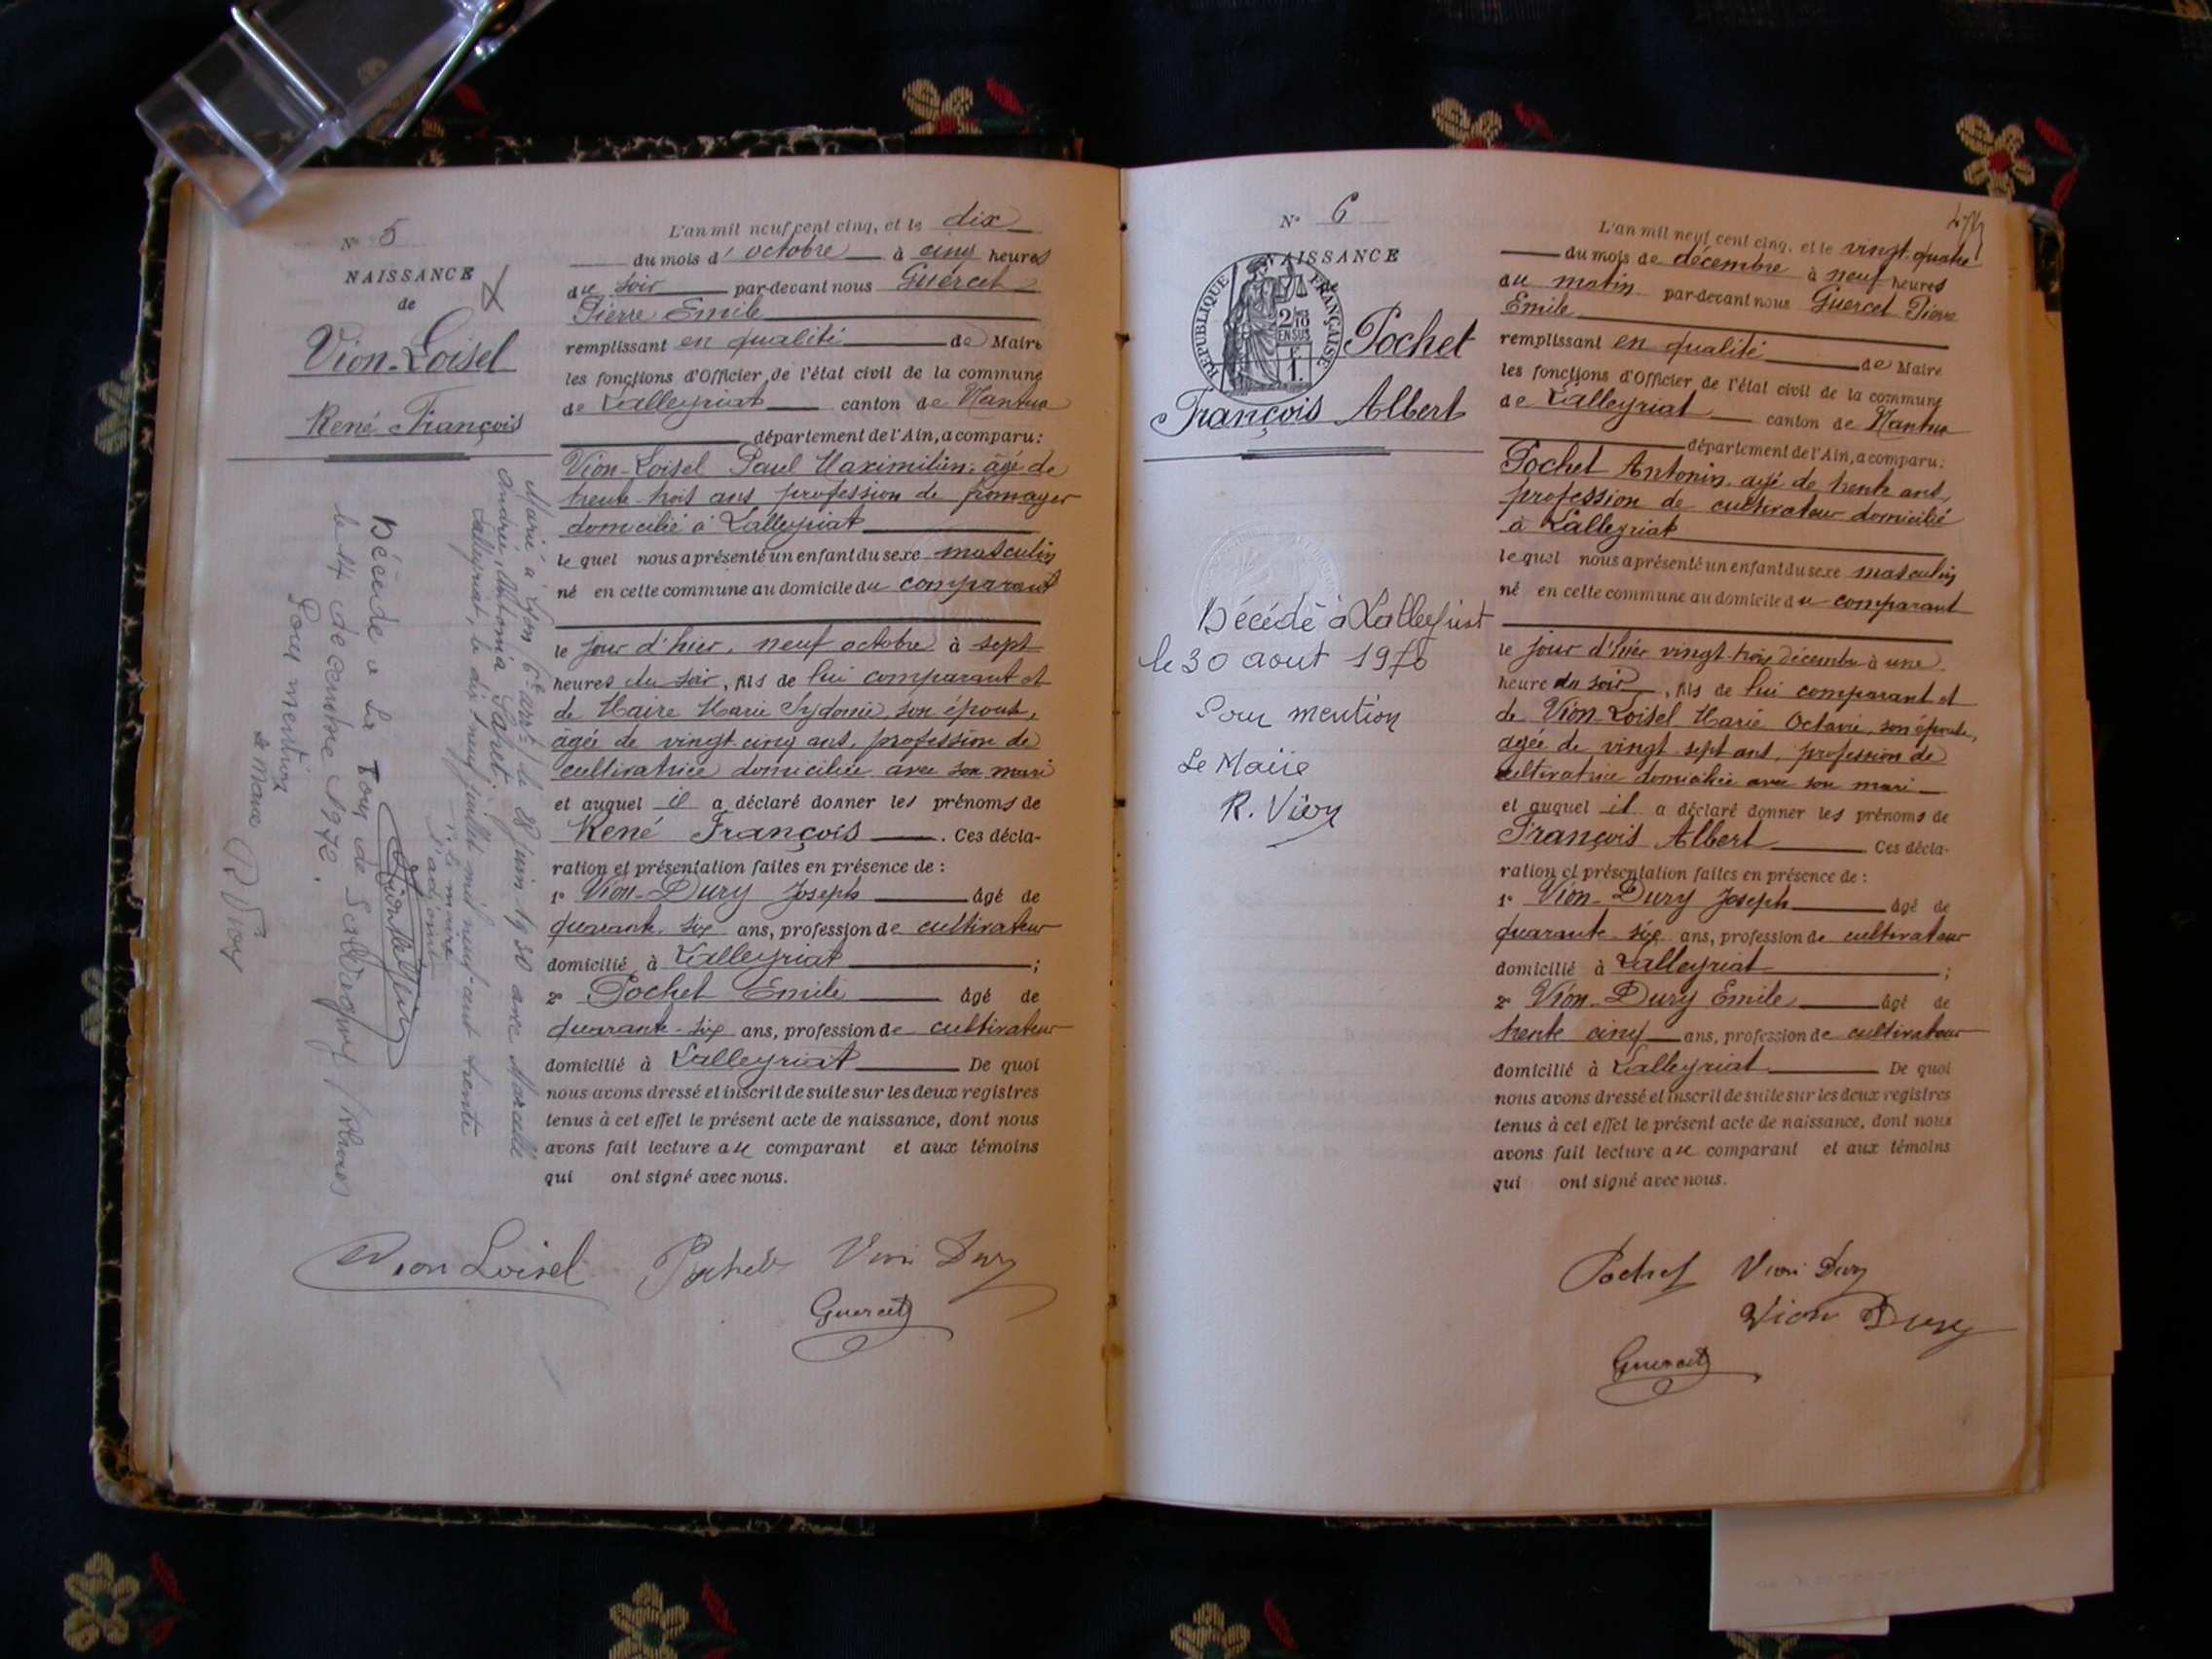 N° 5
NAISSANCE
de
Vion-Loisel
René François
L'an mil neuf cent cinq, et le dix
du mois d'octobre à cinq heures
du soir par-devant nous Guercet
Pierre Emile
remplissant en qualité de Maire
les fonctions d'Officier de l'état civil de la commune
de Lalleyriat canton de Nantua
département de l'Ain, a comparu:
Vion-Loisel Paul Maximilien, âgé de
trente-trois ans profession de fromager
domicilié à Lalleyriat
le quel nous a présenté un enfant du sexe masculin
né en cette commune au domicile du comparant
le jour d'hier, neuf octobre à sept
heures du soir, fils de lui comparant et
de Maire Marie Sydonie, son épouse,
âgée de vingt-cinq ans, profession de
cultivatrice domiciliée avec son mari
et auquel il a déclaré donner les prénoms de
René François. Ces décla-
ration et présentation faites en présence de :
1° Vion-Dury Joseph âgé de
quarante-six ans, profession de cultivateur
domicilié à Lalleyriat ;
2° Pochet Emile âgé de
quarante-six ans, profession de cultivateur
domicilié à Lalleyriat De quoi
nous avons dressé et inscrit de suite sur les deux registres
tenus à cet effet le présent acte de naissance, dont nous
avons fait lecture au comparant et aux témoins
qui ont signé avec nous.
Vion Loisel Pochet Vion Dury
Guercet
Marié à Lyon 6e arrt le 28 juin 1930 avec Marcelle
Andrée, Antonia
Lalleyriat, le dix-neuf juillet mil neuf cent trente
P. le maire
l'adjoint
Décédé à La Tour de Salvagny /Rhône
le 14 décembre 1972.
Pour mention
Le Maire R Vion
N° 6
NAISSANCE
RÉPUBLIQUE FRANÇAISE
2/10
EN SUS
1.
Pochet
François Albert
Décédé à Lalleyriat
le 30 aout 1976
Pour mention
Le Maire
R. Vion
L'an mil neuf cent cinq, et le vingt-quatre
du mois de décembre à neuf heures
du matin par-devant nous Guercet Pierre
Emile
remplissant en qualité de Maire
les fonctions d'Officier de l'état civil de la commune
de Lalleyriat canton de Nantua
département de l'Ain, a comparu:
Pochet Antonin, âgé de trente ans,
profession de cultivateur domicilié
à Lalleyriat
le quel nous a présenté un enfant du sexe masculin
né en cette commune au domicile du comparant
le jour d'hier vingt-trois décembre à une
heure du soir, fils de lui comparant et
de Vion-Loisel Marie Octavie, son épouse,
âgée de vingt-sept ans, profession de
cultivatrice domiciliée avec son mari
et auquel il a déclaré donner les prénoms de
François Albert Ces décla-
ration et présentation faites en présence de :
1° Vion-Dury Joseph âgé de
quarante-six ans, profession de cultivateur
domicilié à Lalleyriat ;
2° Vion-Dury Emile âgé de
trente cinq ans, profession de cultivateur
domicilié à Lalleyriat De quoi
nous avons dressé et inscrit de suite sur les deux registres
tenus à cet effet le présent acte de naissance, dont nous
avons fait lecture au comparant et aux témoins
qui ont signé avec nous.
Pochet Vion Dury
Vion Dury
Guercet